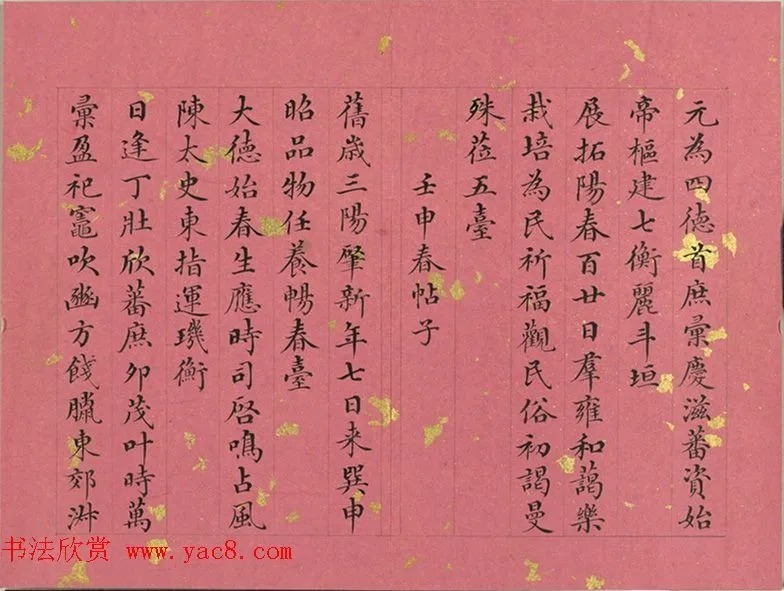 元為四德首庶彙慶滋蕃資始
帝樞建七衡麗斗垣
展拓陽春百廿日羣雍和藹樂
栽培為民祈福觀民俗初謁曼
殊莅五臺
壬申春帖子
舊歲三陽肇新年七日来巽申
昭品物任養暢春臺
大德始春生應時司啓鳴占風
陳太史東指運璣衡
日逢丁壯欣蕃庶卯茂叶時萬
彙盈祀竈吹豳方餞臘東郊洊
书法欣赏 www.yac8.com